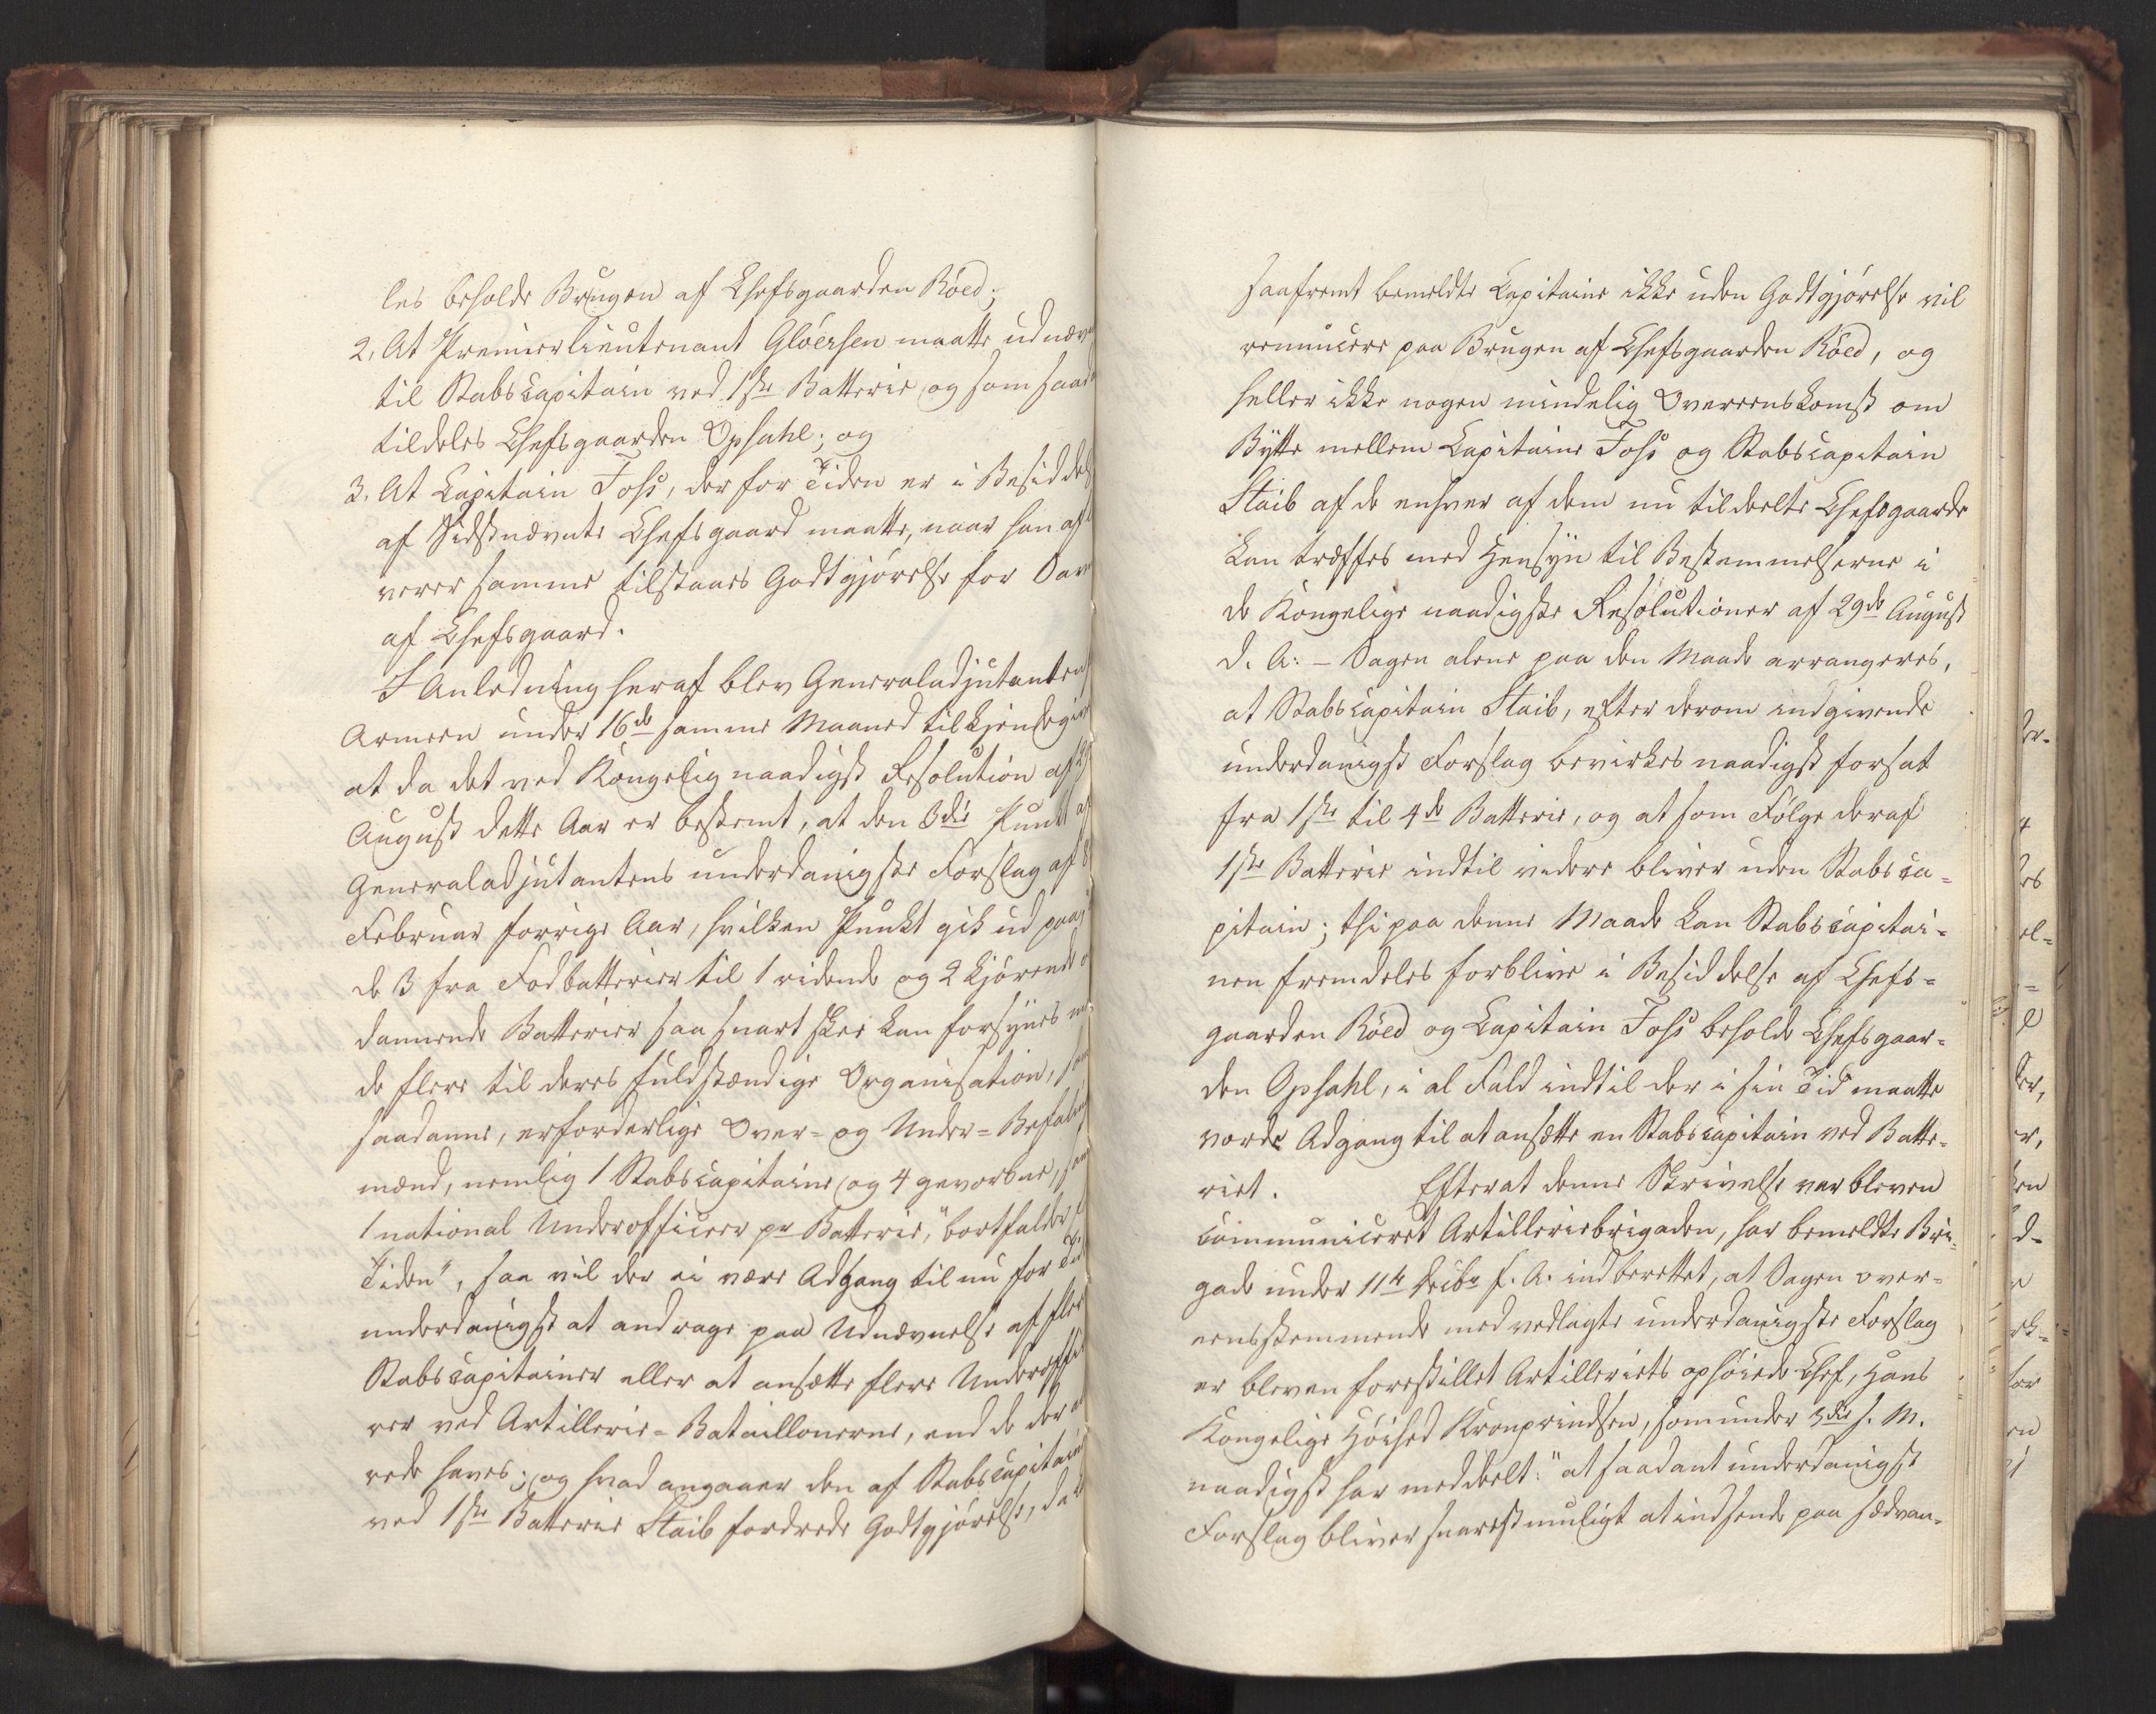 les beholde Brugen af Chefsgaarden Röed;
2. At Premierlieutenant Glöersen maatte udnæv
til Stabscapitain ved 1ste Batterie og som saad
tildeles Chefsgaarden Opsahl; og
3. At Capitain Foss, der for Tiden er i Besiddels
af Sidstnævnte Chefsgaard maatte, naar han afl
verer samme tilstaaes Godtgjörelse for Savn
af Chefsgaard.
I Anledning heraf blev Generaladjutanten
Armeen under 16de samme Maaned tilkjendegiv
at da det ved Kongelig naadigst Resolution af
August dette Aar er bestemt, at den 3die Punkt af
Generaladjutantens underdanigste Forslag af 8
Februar forrige Aar, hvilken Punkt gik ud paa,
de 3 fra Fodbatterier til 1 ridende og 2 kjörende
dannende Batterier saa snart skee kan forsynes m
de flere til deres fuldstændige Organisation, som
saadanne, erforderlige Over- og Under-Befalin
mænd, nemlig 1 Stabscapitaine og 4 gevorbne, sam
1 national Underofficeer pr Batterie, "bortfalder f
Tiden", saa vil der ei være Adgang til nu for Tid
underdanigst at andrage paa Udnævnelse af fler
Stabscapitainer eller at ansætte flere Underoffi
rer ved Artillerie-Bataillonerne, end de der al
rede haves; og hvad angaaer den af Stabscapitain
ved 1ste Batterie Staib fordrede Godtgjörelse, da
saafremt bemeldte Capitaine ikke uden Godtgjörelse vil
renuncere paa Brugen af Chefsgaarden Röed, og
heller ikke nogen mindelig Overeenskomst om
Bytte mellem Capitaine Foss og Stabscapitain
Staib af de enhver af dem nu tildeelte Chefsgaarde
kan træffes med Hensyn til Bestemmelserne i
de Kongelige naadigste Resolutioner af 29de August
d. A: - Sagen alene paa den Maade arrangeres,
at Stabscapitain Staib, efter derom indgivende
underdanigst Forslag bevirkes naadigst forsat
fra 1ste til 4de Batterie, og at som Fölge deraf
1ste Batterie indtil videre bliver uden Stabsca-
pitain; thi paa denne Maade kan Stabscapitai-
nen fremdeles forblive i Besiddelse af Chefs-
gaarden Röed og Capitain Foss beholde Chefsgaar-
den Opsahl, i al Fald indtil der i sin Tid maatte
vorde Adgang til at ansætte en Stabscapitain ved Batte-
riet. Efterat denne Skrivelse var bleven
communiceret Artilleriebrigaden, har bemeldte Bri-
gade under 11te Decbr f. A. indberettet, at Sagen over-
eensstemmende med vedlagte underdanigste Forslag
er bleven forestillet Artilleriets ophöiede Chef, Hans
Kongelige Höihed Kronprindsen, som under 3die s. M.
naadigst har meddeelt: "at saadant underdanigst
Forslag bliver snarest muligt at indsende paa sædvan-